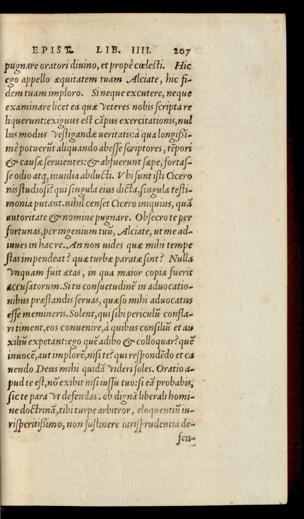 EPIST. LIB. IIII. 207
pugnare oratori divino, et propè cœlesti. Hic
ego appello æquitatem tuam Alciate, hic fi-
dem tuam imploro. Si neque excutere, neque
examinare licet ea quæ veteres nobis scripta re
liquerunt: exiguus est cāpus exercitationis, nul
lus modus vestigandæ veritatis: à qua longissi-
mè potuerūt aliquando abesse scriptores, tēpori
& causæ seruientes: & abfuerunt sæpe, fortas-
se odio atq; inuidia abducti. Vbi sunt isti Cicero
nis studiosi? qui singula eius dicta, singula testi-
monia putant. nihil censet Cicero iniquius, quā
autoritate & nomine pugnare. Obsecro te per
fortunas, per ingenium tuū, Alciate, ut me ad-
iuues in hac re. An non uides quæ mihi tempe
stas impendeat? quæ turbæ paratæ sint? Nulla
vnquam fuit ætas, in qua maior copia fuerit
accusatorum. Si tu consuetudinē in aduocatio-
nibus præstandis seruas, quæso mihi aduocatus
esse memineris. Solent, qui sibi periculū confla-
ri timent, eos conuenire, à quibus consiliū et au
xiliū expetant: ego quē adibo & colloquar? quē
inuocē, aut implorē, nisi te? qui respondēdo et ca
uendo Deus mihi quidā videri soles. Oratio a-
pud te est, nō exibit nisi iussu tuo: si eā probabis,
sic te para vt defendas. ob dignā liberali homi-
ne doctrinā, tibi turpe arbitror, eloquentiū iu-
risperitissimo, non sustinere iurisprudentia de-
fen-